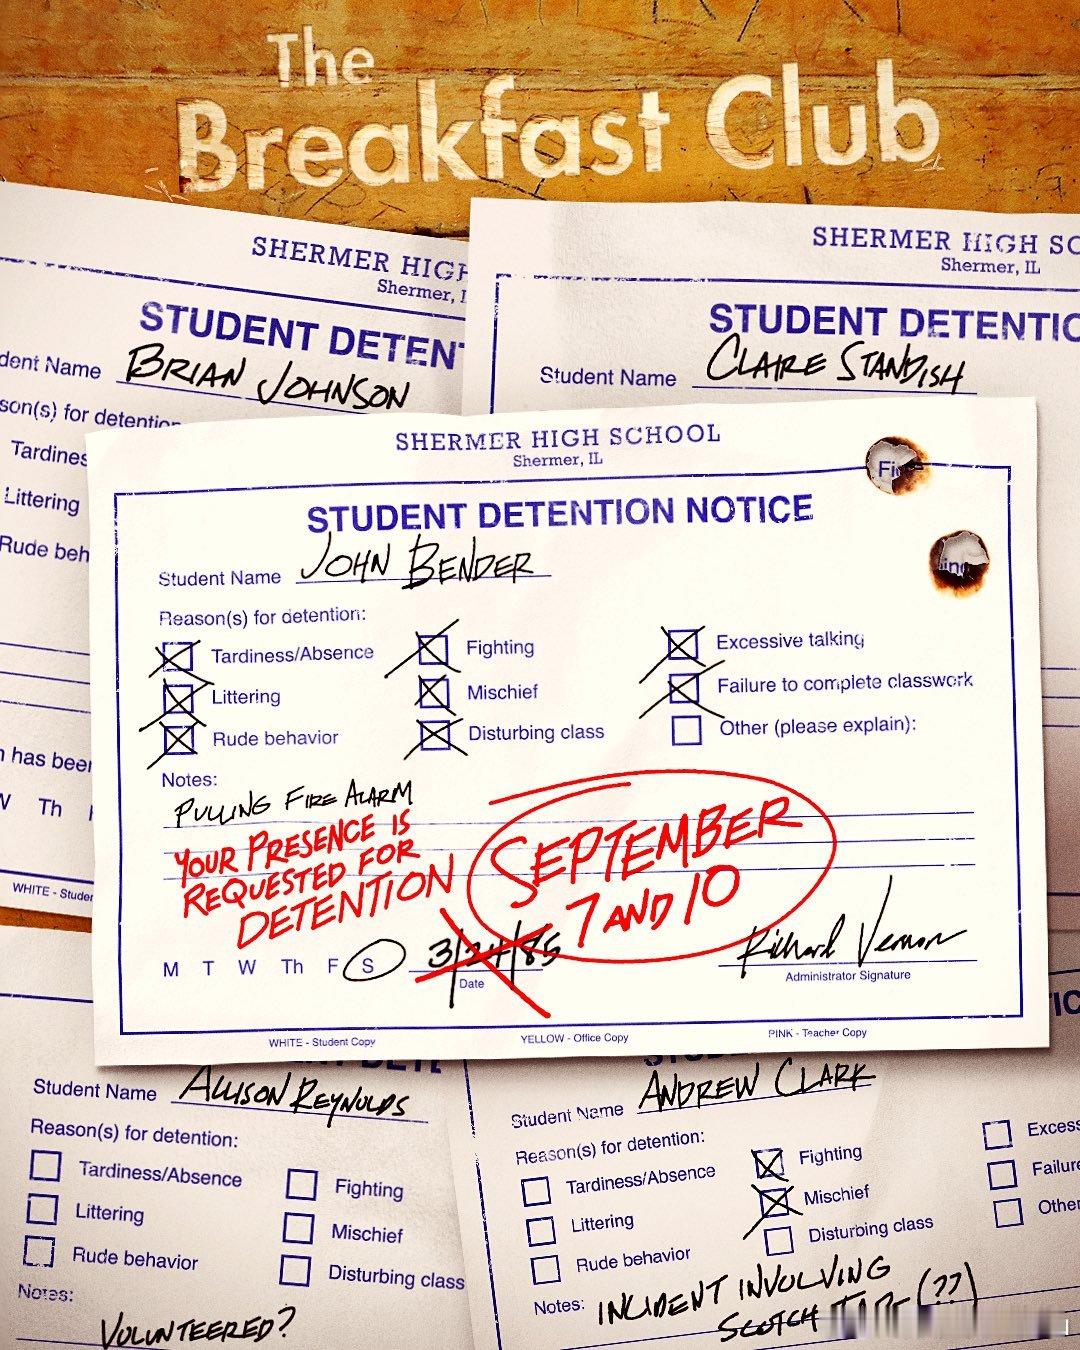 The
Breakfast Club
SHERMER HIGH
Shermer, I
STUDENT DETEN
dent Name BRIAN JOHNSON
son(s) for detention
Tardines
Littering
Rude beh
n has been
W Th
WHITE - Studen
SHERMER HIGH SC
Shermer, IL
STUDENT DETENTIO
Student Name CLAIRE STANDISH
SHERMER HIGH SCHOOL
Shermer, IL
Fi
ing
STUDENT DETENTION NOTICE
Student Name JOHN BENDER
Reason(s) for detention:
Tardiness/Absence Fighting Excessive talking
Littering Mischief Failure to complete classwork
Rude behavior Disturbing class Other (please explain):
Notes:
PULLING FIRE ALARM
YOUR PRESENCE IS
REQUESTED FOR
DETENTION
SEPTEMBER
7 AND 10
M T W Th F S 3/24/85 Richard Vernon
Date Administrator Signature
WHITE - Student Copy YELLOW - Office Copy PINK - Teacher Copy
Student Name ALLISON REYNOLDS
Reason(s) for detention:
Tardiness/Absence Fighting
Littering Mischief
Rude behavior Disturbing class
Notes:
VOLUNTEERED?
Student Name ANDREW CLARK
Reason(s) for detention:
Tardiness/Absence Fighting Excess
Littering Mischief Failure
Rude behavior Disturbing class Other
Notes: INCIDENT INVOLVING
SCOTCH TAPE (??)